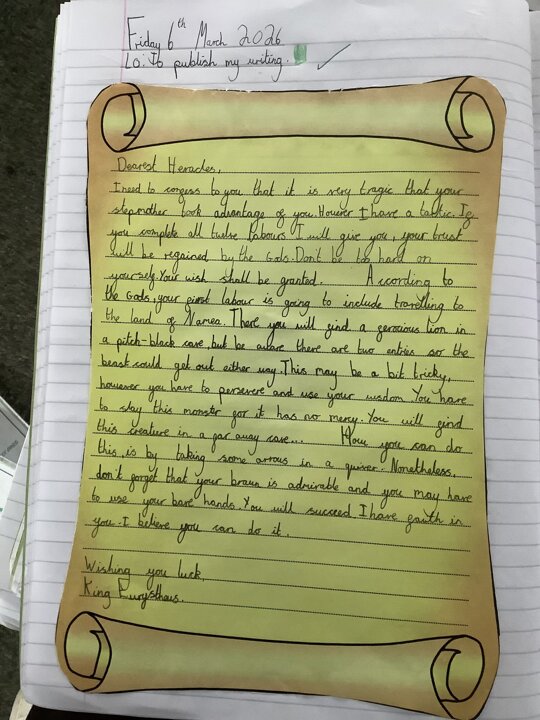 Friday 6th March 2026
LO: To publish my writing.
Dearest Heracles,
I need to confess to you that it is very tragic that your
stepmother took advantage of you. Howevr I have a tactic. If
you complete all twelve labours I will give you, your trust
will be regained by the Gods. Dont be too hard on
yourself. Your wish shall be granted. According to
the Gods, your first labour is going to include travelling to
the land of Namea. There you will find a ferocious lion in
a pitch-black cave, but be aware there are two entries so the
beast could get out either way. This may be a bit tricky,
however you have to persevere and use your wisdom. You have
to slay this monster for it has no mercy. You will find
this creature in a far away cave... How you can do
this, is by taking some arrows in a quiver. Nonetheless,
don't forget that your braun is admirable and you may have
to use your bare hands. You will succeed. I have faith in
you. I believe you can do it.
Wishing you luck,
King